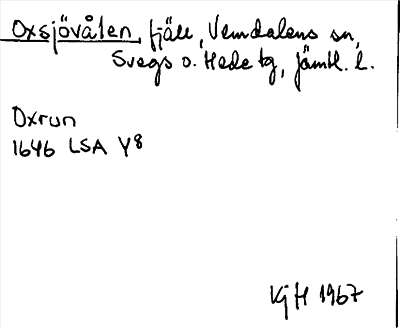 Oxsjövålen, fjäll, Vemdalens sn,
Svegs o. Hede tg, Jämtl. l.
Oxrun
1646 LSA Y8
KjH 1967